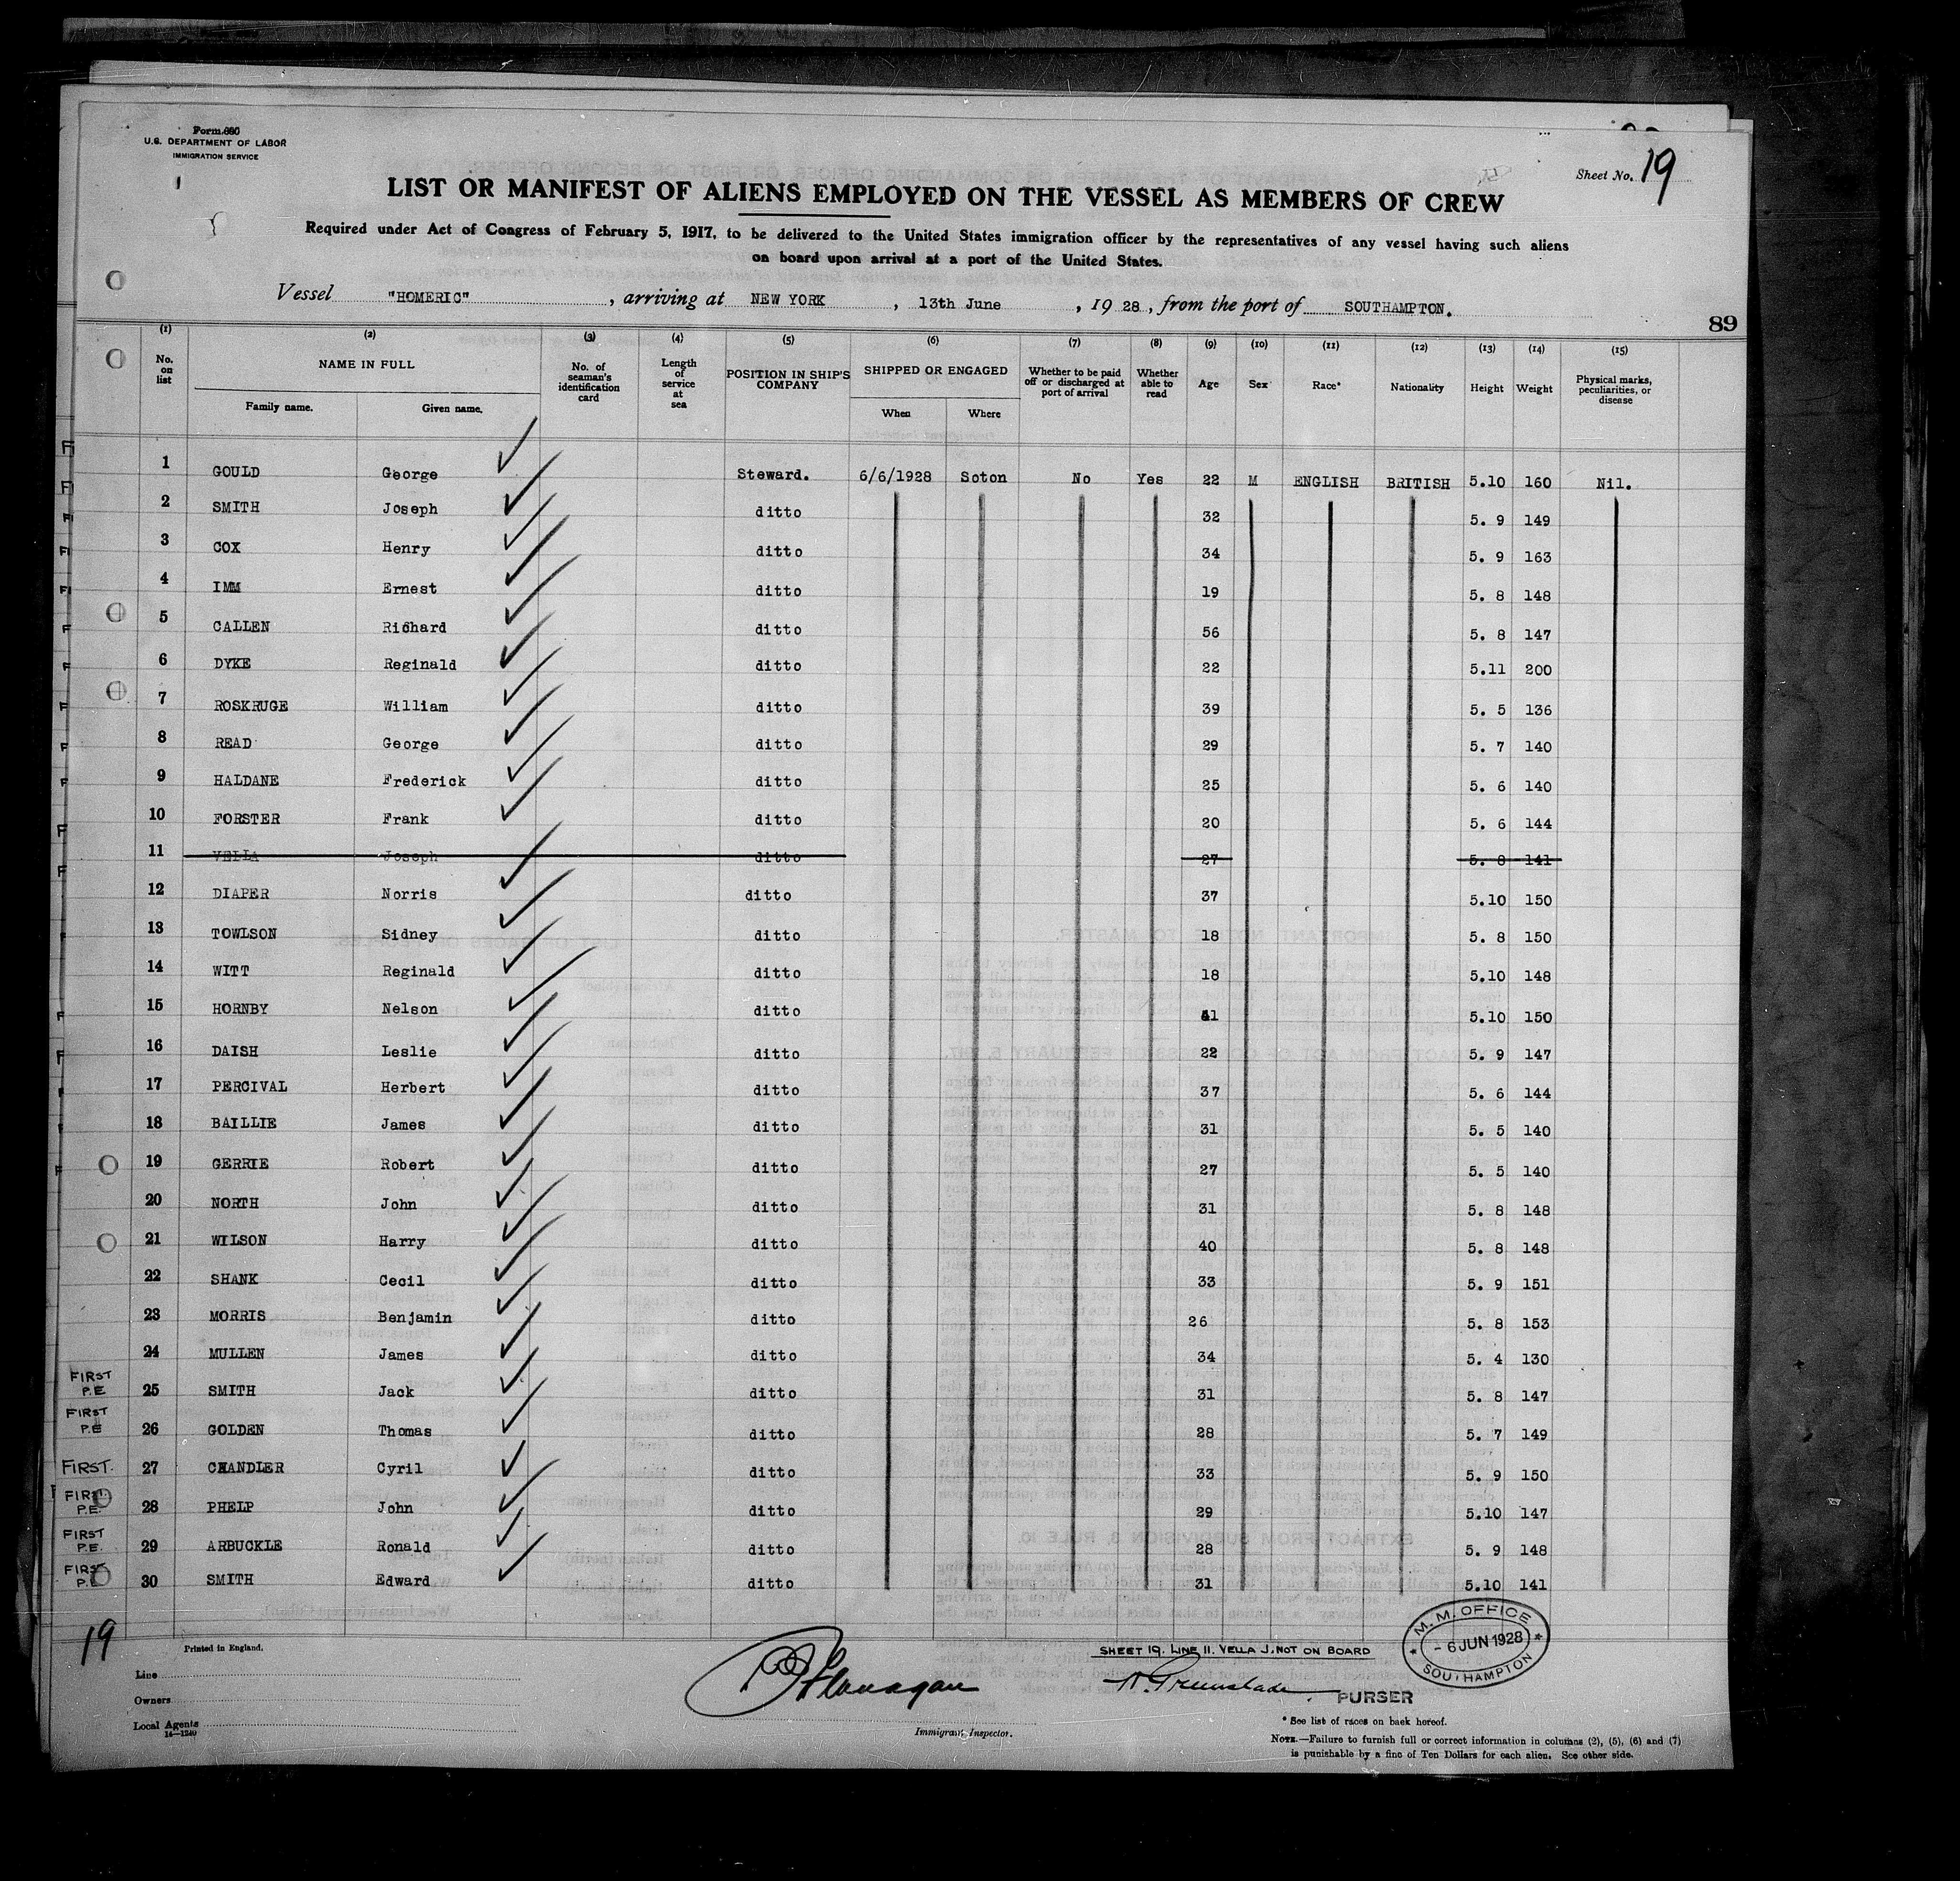 Form 680
U.S. DEPARTMENT OF LABOR
IMMIGRATION SERVICE
Sheet No. 19
LIST OR MANIFEST OF ALIENS EMPLOYED ON THE VESSEL AS MEMBERS OF CREW
Required under Act of Congress of February 5, 1917, to be delivered to the United States immigration officer by the representatives of any vessel having such aliens
on board upon arrival at a port of the United States.
Vessel "HOMERIC", arriving at NEW YORK, 13th June, 1928, from the port of SOUTHAMPTON.
89
(1) (2) (3) (4) (5) (6) (7) (8) (9) (10) (11) (12) (13) (14) (15)
No. on list NAME IN FULL Family name. Given name. No. of seaman's identification card Length of service at sea POSITION IN SHIP'S COMPANY SHIPPED OR ENGAGED When Where Whether to be paid off or discharged at port of arrival Whether able to read Age Sex Race* Nationality Height Weight Physical marks, peculiarities, or disease
1 GOULD George Steward. 6/6/1928 Soton No Yes 22 M ENGLISH BRITISH 5.10 160 Nil.
2 SMITH Joseph ditto 32 5. 9 149
3 COX Henry ditto 34 5. 9 163
4 IMM Ernest ditto 19 5. 8 148
5 CALLEN Richard ditto 56 5. 8 147
6 DYKE Reginald ditto 22 5.11 200
7 ROSKRUGE William ditto 39 5. 5 136
8 READ George ditto 29 5. 7 140
9 HALDANE Frederick ditto 25 5. 6 140
10 FORSTER Frank ditto 20 5. 6 144
11 VELLA Joseph ditto 27 5. 8 141
12 DIAPER Norris ditto 37 5.10 150
13 TOWLSON Sidney ditto 18 5. 8 150
14 WITT Reginald ditto 18 5.10 148
15 HORNBY Nelson ditto 41 5.10 150
16 DAISH Leslie ditto 22 5. 9 147
17 PERCIVAL Herbert ditto 37 5. 6 144
18 BAILLIE James ditto 31 5. 5 140
19 GERRIE Robert ditto 27 5. 5 140
20 NORTH John ditto 31 5. 8 148
21 WILSON Harry ditto 40 5. 8 148
22 SHANK Cecil ditto 33 5. 9 151
23 MORRIS Benjamin ditto 26 5. 8 153
24 MULLEN James ditto 34 5. 4 130
FIRST P.E 25 SMITH Jack ditto 31 5. 8 147
FIRST P.E 26 GOLDEN Thomas ditto 28 5. 7 149
FIRST. 27 CHANDLER Cyril ditto 33 5. 9 150
FIRST P.E. 28 PHELP John ditto 29 5.10 147
FIRST P.E. 29 ARBUCKLE Ronald ditto 28 5. 9 148
FIRST P.E 30 SMITH Edward ditto 31 5.10 141
19
Printed in England.
SHEET 19. LINE 11. VELLA J. NOT ON BOARD
M. M. OFFICE
- 6 JUN 1928
SOUTHAMPTON
Line
Owners
Local Agents
14—1240
Flanagan
Immigrant Inspector.
PURSER
* See list of races on back hereof.
NOTE.—Failure to furnish full or correct information in columns (2), (5), (6) and (7)
is punishable by a fine of Ten Dollars for each alien. See other side.